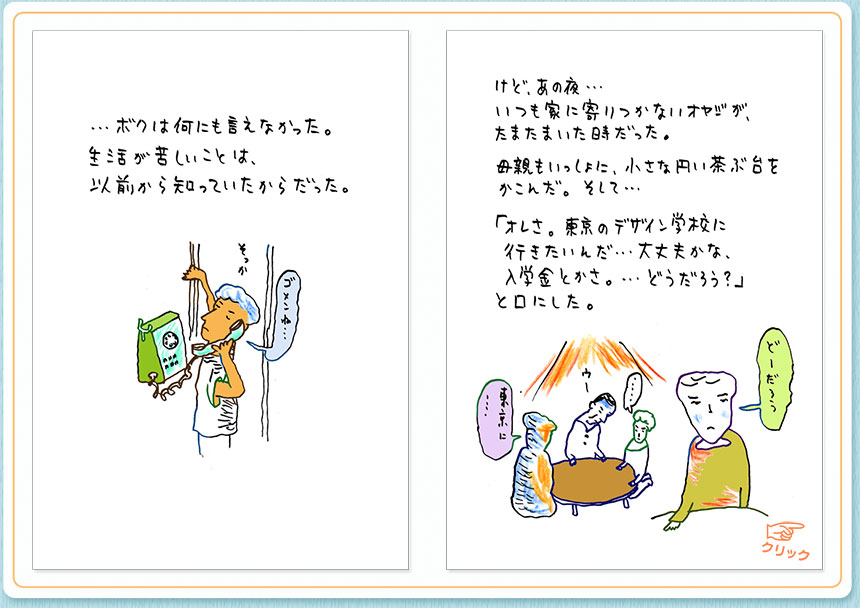 …ボクは何にも言えなかった。
生活が苦しいことは、
以前から知っていたからだった。
そっか
ゴメンね…
けど、あの夜…
いつも家に寄りつかないオヤジが、
たまたまいた時だった。
母親もいっしょに、小さな円い茶ぶ台を
かこんだ。そして…
「オレさ。東京のデザイン学校に
行きたいんだ…大丈夫かな、
入学金とかさ。…どうだろう?」
と口にした。
ウー
……
東京に
……
どーだろう
クリック